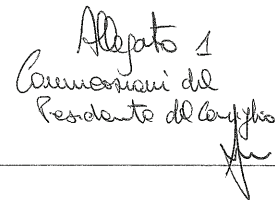 Allegato 1
Comunicazioni del
Presidente del Consiglio